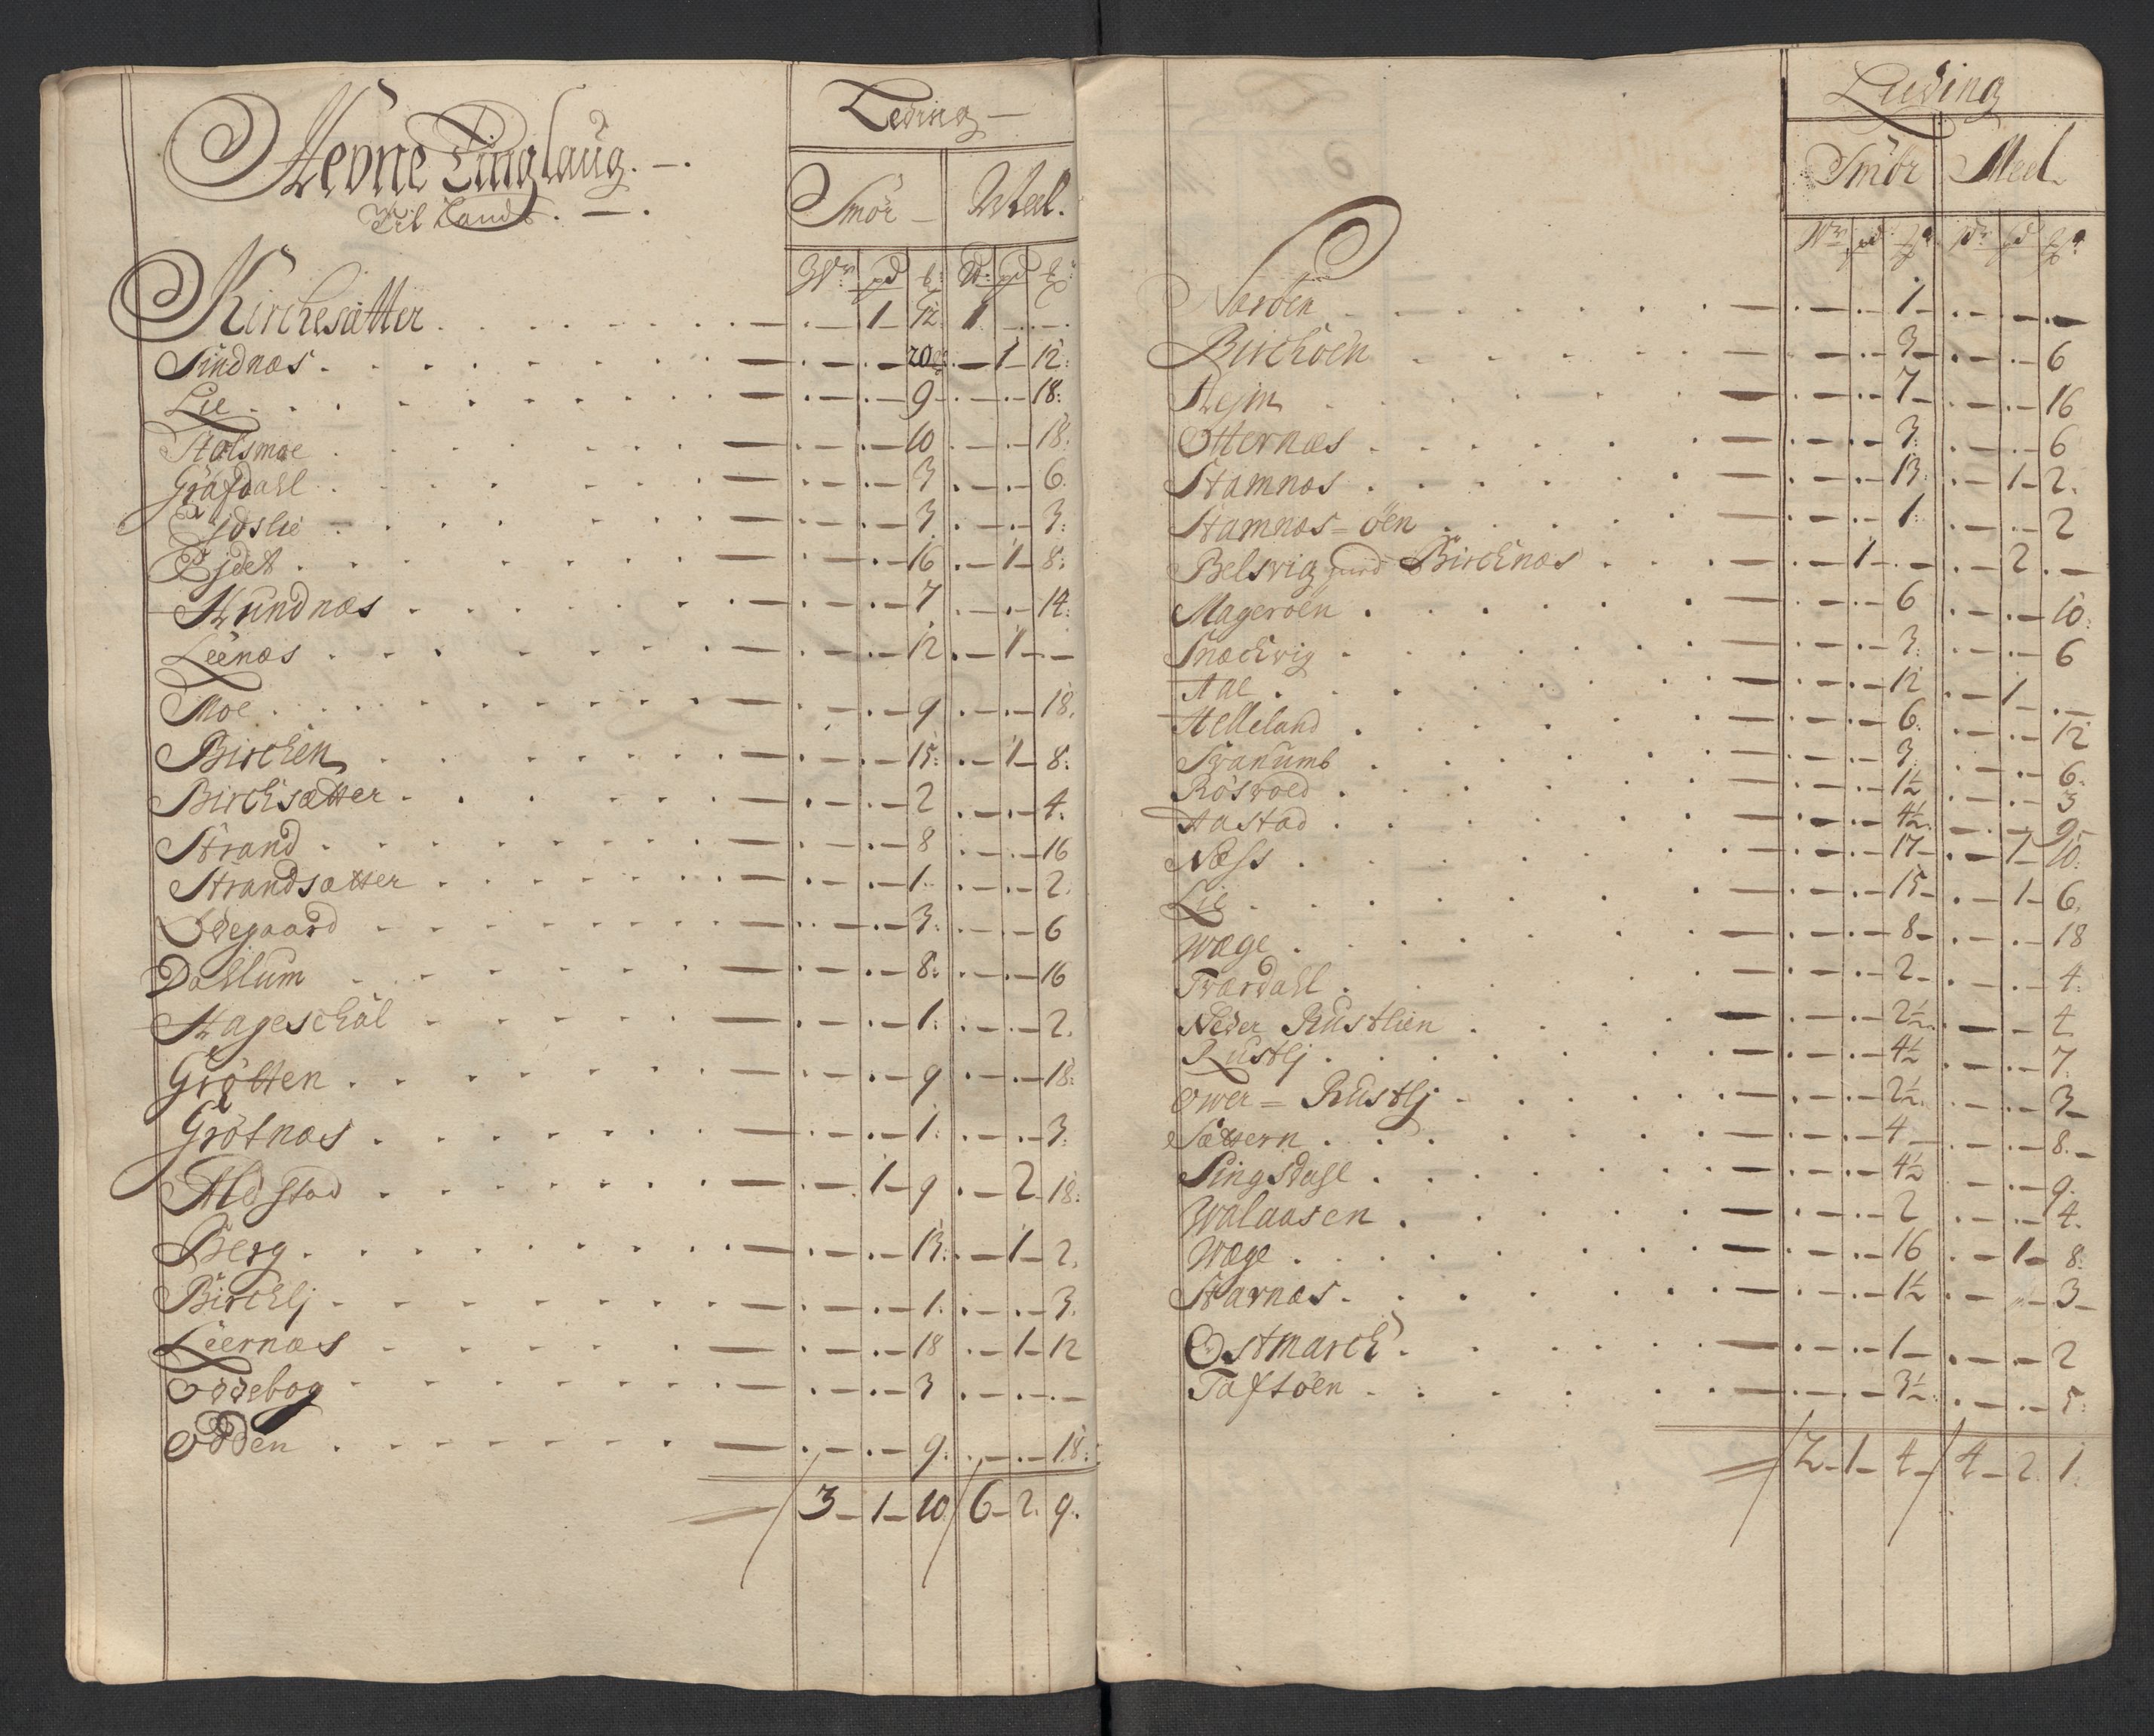 Hevne Tinglaug. —.
Til Lands. — .
Leding —
Smör — Meel.
Wr: pd ℔: Wr: pd ℔:
Kirchesætter . . . — . — 1 — 12. 1. — . — .
Sindnæs . . . — . — . — 20 . — 1 — 12:
Lie . . . — . — . — 9 — . — . — 18:
Stolsmoe . . . — . — . — 10 . — . — 18.
Grafdahl . . . — . — . — 3 . — . — 6.
Ejdslie — . . . — . — . — 3 . — . — 3:
Ejdet . . . — . — . — 16 . — 1 — 8:
Hundnæs . . . — . — . — 7 . — . — 14:
Leenæs . . . — . — . — 12 . — 1 — . —
Moe . . . — . — . — 9 . — . — 18.
Birchen . . . — . — . — 15: . — 1 — 8:
Birchsætter . . . — . — . — 2 . — . — 4.
Strand . . . — . — . — 8 . — . — 16
Strandsætter . . . — . — . — 1. . — . — 2.
Ödegaard . . . — . — . — 3: . — . — 6
Dahlum . . . — . — . — 8: . — . — 16
Hageschål . . . — . — . — 1: . — . — 2.
Grötten . . . — . — . — 9 . — . — 18:
Grötnæs . . . — . — . — 1: . — . — 3:
Aldstad . . . — . — 1 — 9 . — 2 — 18:
Berg . . . — . — . — 13: . — 1 — 2.
Birchlj . . . — . — . — 1. . — . — 3.
Leernæs . . . — . — . — 18 . — 1 — 12
Oddebog . . . — . — . — 3 . — . — . —
Odden . . . — . — . — 9. . — . — 18:
3 — 1 — 10 6 — 2. 9.
Leeding
Smör Meel.
Wr pd ℔ Wr pd ℔
Naröen . . . — . — . — 1 — . — . — . —
Birchöen . . . — . — . — 3 — . — . — 6
Hejm . . . — . — . — 7 — . — . — 16
Otternæs . . . — . — . — 3: . — . — 6
Stamnæs . . . — . — . — 13: . — 1 — 2.
Stamnæs = öen . . . — . — . — 1: . — . — 2
Belsvig med Birchnæs . . . — . — 1 — . — . — 2 . —
Mageröen . . . — . — . — 6 . — . — 10:
Snæchvig . . . — . — . — 3: . — . — 6
Aae . . . — . — . — 12 . — 1 — . —
Helleland . . . — . — . — 6: . — . — 12
Svanumb . . . — . — . — 3. . — . — 6.
Rösvold . . . — . — . — 1½ . — . — 3
Hastad . . . — . — . — 4½. . — . — 9.
Næss . . . — . — . — 17 — . — 1 — 10:
Lie . . . — . — . — 15 — . — 1 — 6.
Wæge . . . — . — . — 8 — . — . — 18
Tvardahl . . . — . — . — 2 — . — . — 4.
Neder Rustlien . . . — . — . — 2½. . — — 4
Rustlj . . . — . — . — 4½ . — . — 7.
Ower = Rustlj . . . — . — . — 2½. . — . — 3 —
Sættern . . . — . — . — 4 — . — . — 8. —
Singsdahl . . . — . — . — 4½ . — . — 9.
Walaasen . . . — . — . — 2 . — . — 4.
Wæge . . . — . — . — 16 . — 1 — 8:
Starnæs . . . — . — . — 1½ . — — 3 —
Ostmarch . . . — . — . — 1 — . — . — 2
Taftöen . . . — . — . — 3½. . — . — 5:
2 — 1 — 4 — 4 — 2. 1.